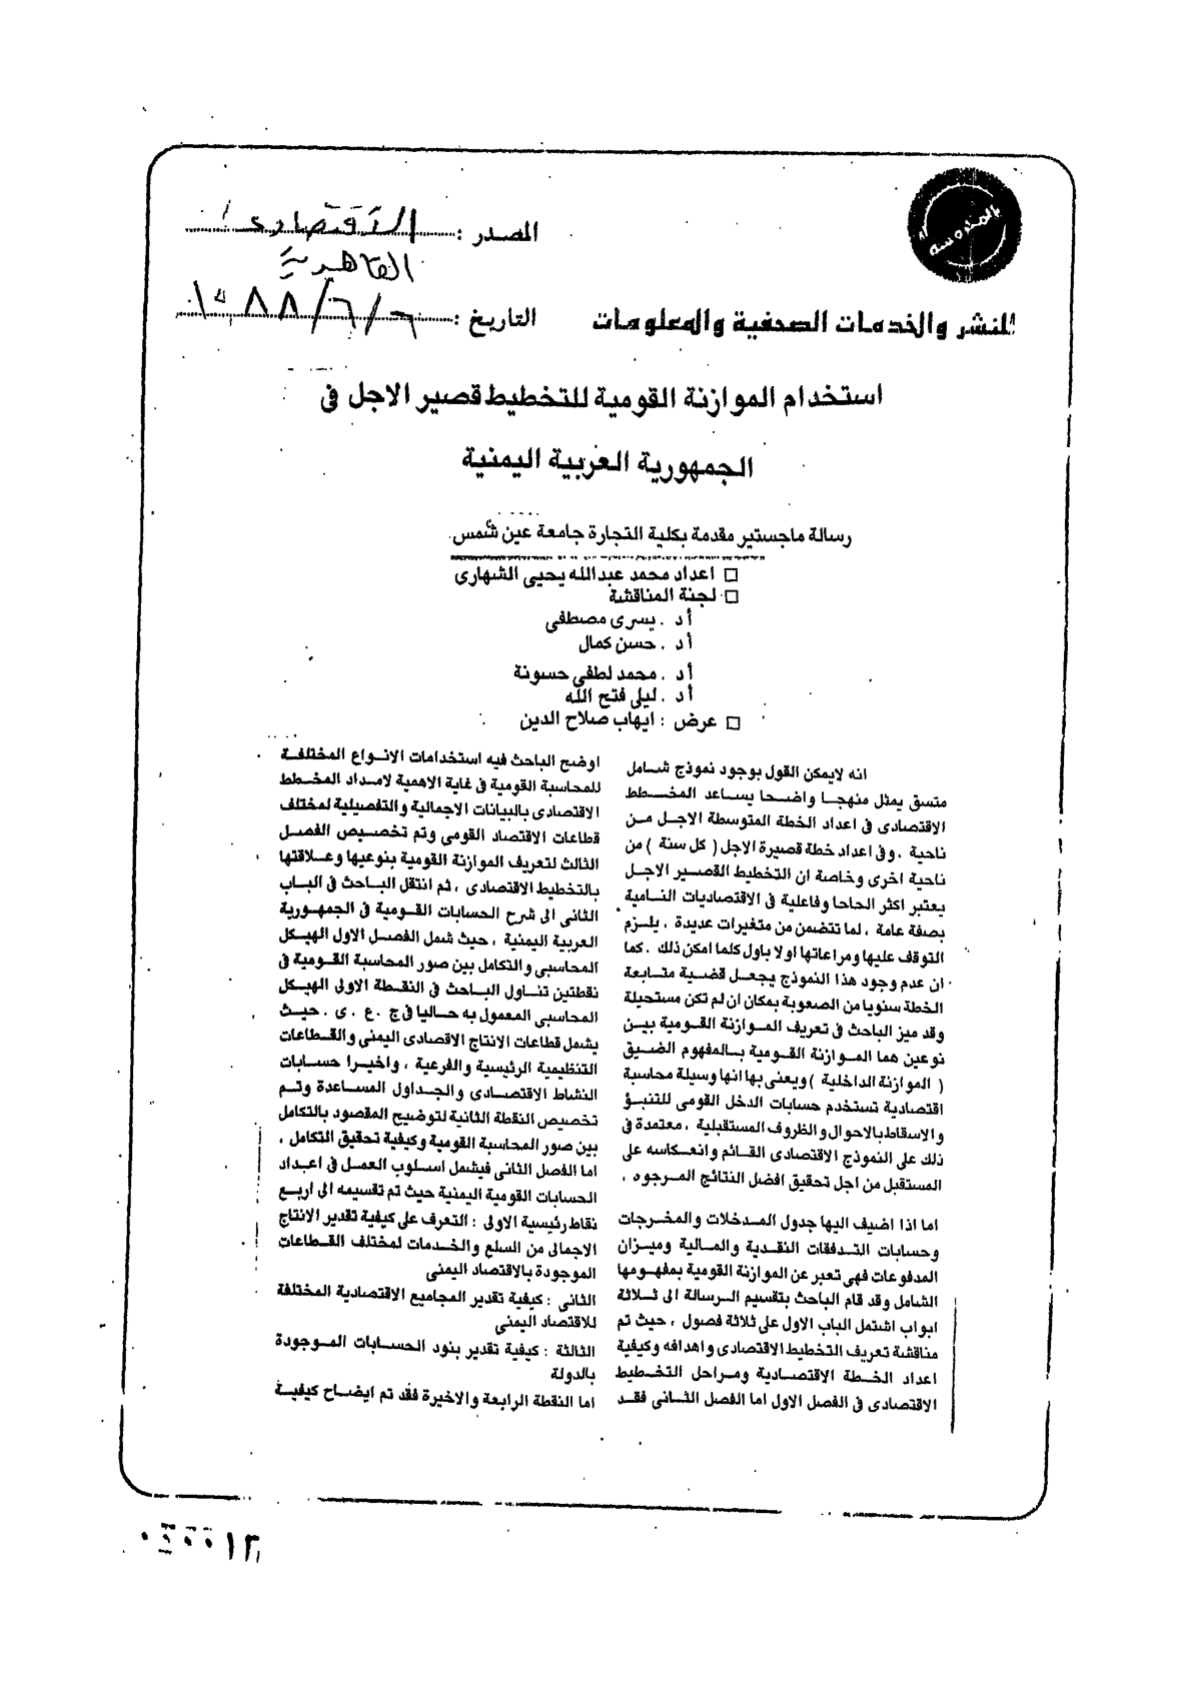 المصدر : الاقتصادي
القاهرية
التاريخ : ٦/٦/١٩٨٨
للنشر والخدمات الصحفية والمعلومات
استخدام الموازنة القومية للتخطيط قصير الاجل فى
الجمهورية العربية اليمنية
رسالة ماجستير مقدمة بكلية التجارة جامعة عين شمس.
□ اعداد محمد عبدالله يحيى الشهارى
□ لجنة المناقشة
أ د . يسرى مصطفى
أ د . حسن كمال
أ د . محمد لطفى حسونة
أ د . ليلى فتح الله
□ عرض : ايهاب صلاح الدين
انه لايمكن القول بوجود نموذج شامل
متسق يمثل منهجا واضحا يساعد المخطط
الاقتصادى فى اعداد الخطة المتوسطة الاجل من
ناحية . وفى اعداد خطة قصيرة الاجل ( كل سنة ) من
ناحية اخرى وخاصة ان التخطيط القصير الاجل
يعتبر اكثر الحاحا وفاعلية فى الاقتصاديات النامية
بصفة عامة ، لما تتضمن من متغيرات عديدة . يلزم
التوقف عليها ومراعاتها اولا باول كلما امكن ذلك . كما
ان عدم وجود هذا النموذج يجعل قضية متابعة
الخطة سنويا من الصعوبة بمكان ان لم تكن مستحيلة
وقد ميز الباحث فى تعريف الموازنة القومية بين
نوعين هما الموازنة القومية بالمفهوم الضيق
( الموازنة الداخلية ) ويعنى بها انها وسيلة محاسبة
اقتصادية تستخدم حسابات الدخل القومى للتنبؤ
والاسقاط بالاحوال والظروف المستقبلية . معتمدة فى
ذلك على النموذج الاقتصادى القائم وانعكاسه على
المستقبل من اجل تحقيق افضل النتائج المرجوه .
اما اذا اضيف اليها جدول المدخلات والمخرجات
وحسابات التدفقات النقدية والمالية وميزان
المدفوعات فهى تعبر عن الموازنة القومية بمفهومها
الشامل وقد قام الباحث بتقسيم الرسالة الى ثلاثة
ابواب اشتمل الباب الاول على ثلاثة فصول ، حيث تم
مناقشة تعريف التخطيط الاقتصادى واهدافه وكيفية
اعداد الخطة الاقتصادية ومراحل التخطيط
الاقتصادى فى الفصل الاول اما الفصل الثانى فقد
اوضح الباحث فيه استخدامات الانواع المختلفة
للمحاسبة القومية فى غاية الاهمية لامداد المخطط
الاقتصادى بالبيانات الاجمالية والتفصيلية لمختلف
قطاعات الاقتصاد القومى وتم تخصيص الفصل
الثالث لتعريف الموازنة القومية بنوعيها وعلاقتها
بالتخطيط الاقتصادى ، ثم انتقل الباحث فى الباب
الثانى الى شرح الحسابات القومية فى الجمهورية
العربية اليمنية ، حيث شمل الفصل الاول الهيكل
المحاسبى والتكامل بين صور المحاسبة القومية فى
نقطتين تناول الباحث فى النقطة الاولى الهيكل
المحاسبى المعمول به حاليا فى ج . ع . ى . حيث
يشمل قطاعات الانتاج الاقتصادى اليمنى والقطاعات
التنظيمية الرئيسية والفرعية ، واخيرا حسابات
النشاط الاقتصادى والجداول المساعدة وتم
تخصيص النقطة الثانية لتوضيح المقصود بالتكامل
بين صور المحاسبة القومية وكيفية تحقيق التكامل ،
اما الفصل الثانى فيشمل اسلوب العمل فى اعداد
الحسابات القومية اليمنية حيث تم تقسيمه الى اربع
نقاط رئيسية الاولى : التعرف على كيفية تقدير الانتاج
الاجمالى من السلع والخدمات لمختلف القطاعات
الموجودة بالاقتصاد اليمنى
الثانى : كيفية تقدير المجاميع الاقتصادية المختلفة
للاقتصاد اليمنى
الثالثة : كيفية تقدير بنود الحسابات الموجودة
بالدولة
اما النقطة الرابعة والاخيرة فقد تم ايضاح كيفية